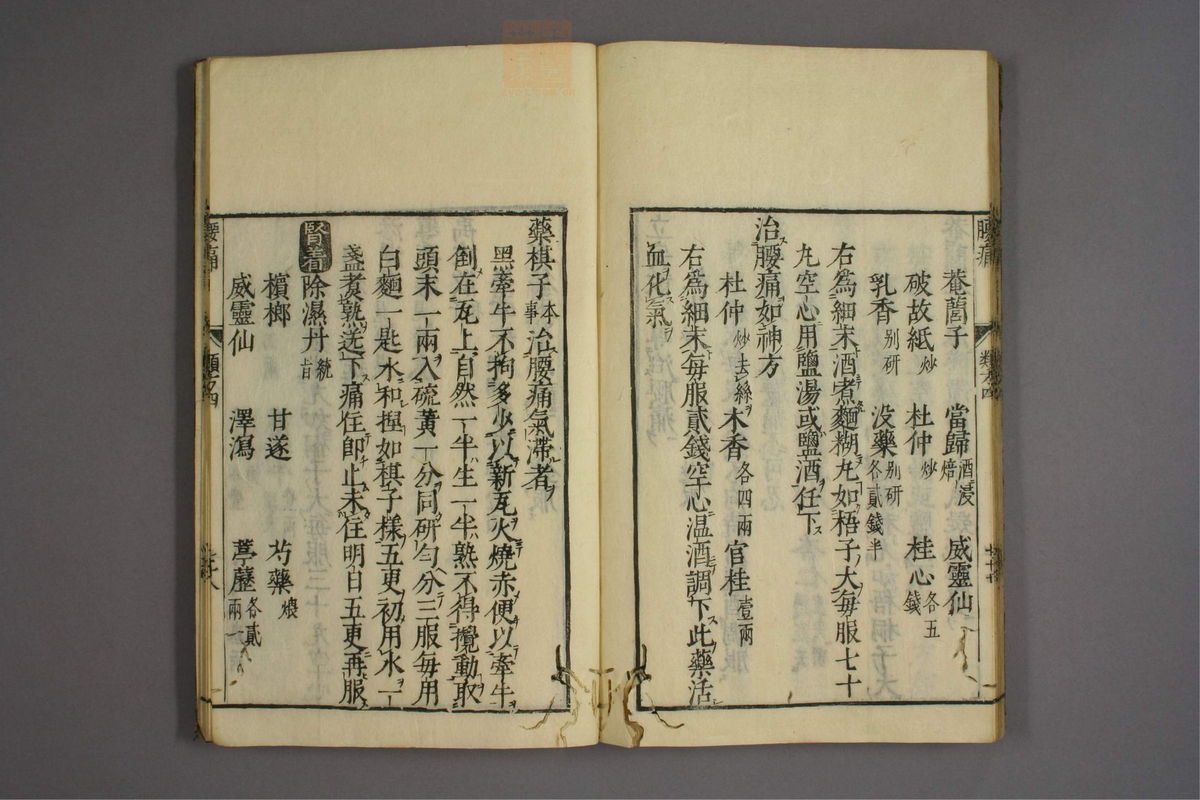 腰痛 類卷四 七十七
菴䕡子 當歸酒浸焙 威靈仙
破故紙炒 杜仲炒 桂心各五錢
乳香别研 没藥别研各貳錢半
右為細末酒煮麵糊丸如梧子大每服七十
丸空心用鹽湯或鹽酒任下
治腰痛如神方
杜仲炒去絲 木香各四兩 官桂壹兩
右為細末每服貳錢空心温酒調下此藥活
血化氣
藥棋子本事治腰痛氣滯者
黑牽牛不拘多少以新瓦火燒赤便以牽牛
倒在瓦上自然一半生一半熟不得攪動取
頭末一兩入硫黄一分同研匀分三服每用
白麵一匙水和捏如棋子樣五更初用水一
盞煮熟送下痛住即止未住明日五更再服
腎着除濕丹統旨
檳榔 甘遂 芍藥煨
威靈仙 澤瀉 葶藶各貳兩一
腰痛 類卷四 七十八